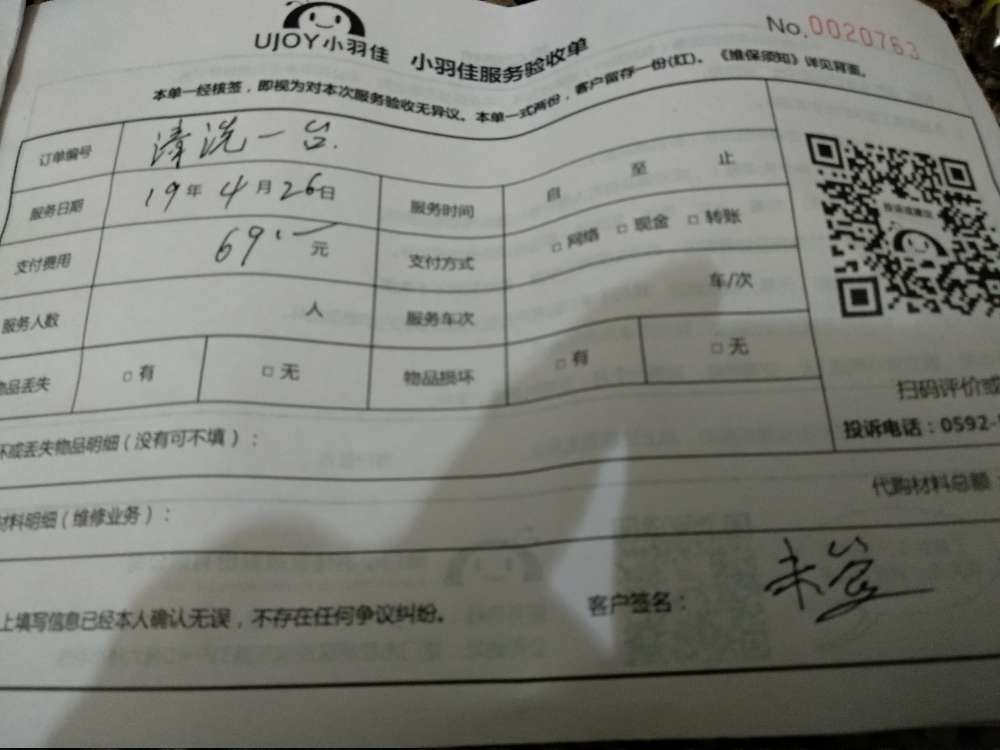 UJOY小羽佳 小羽佳服务验收单 No.0020763
本单一经核签，即视为对本次服务验收无异议。本单一式两份，客户留存一份(红)。《维保须知》详见背面。
订单编号 清洗一台.
服务日期 19年4月26日 服务时间 自 至 止
支付费用 69.一元 支付方式 □网络 □现金 □转账
服务人数 人 服务车次 车/次
物品丢失 □有 □无 物品损坏 □有 □无
投诉或建议
扫码评价或
投诉电话：0592-
坏或丢失物品明细（没有可不填）：
材料明细（维修业务）： 代购材料总额：
上填写信息已经本人确认无误，不存在任何争议纠纷。 客户签名：